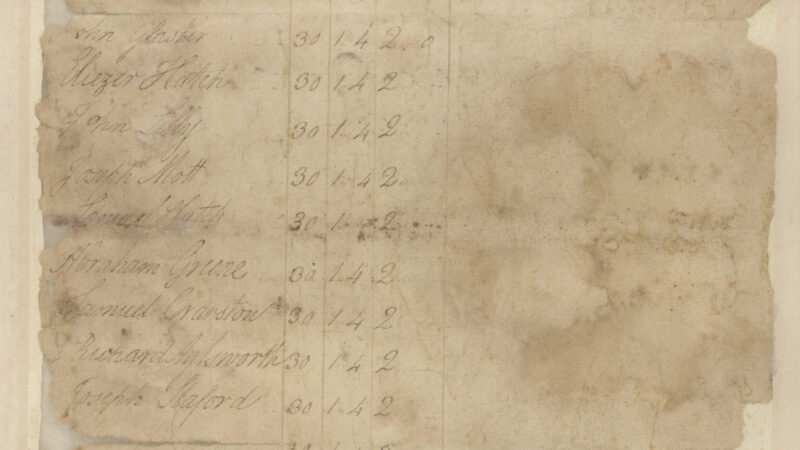 John 30 1 4 2 0
Eliezer Hatch 30 1 4 2
John Lilly 30 1 4 2
Joseph Mott 30 1 4 2
Samuel Hatch 30 1 4 2
Abraham Greene 30 1 4 2
Samuel Cranston 30 1 4 2
Richard 30 1 4 2
Joseph Staford 30 1 4 2